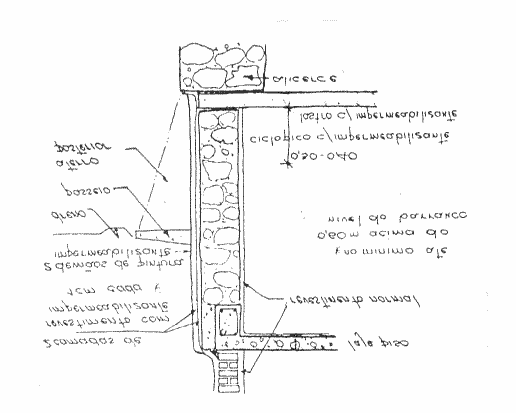 2 camadas de
revestimento com
impermeabilizante
1cm cada y
laje piso
revestimento normal
2 demãos de pintura
impermeabilizante
y no minimo até
0,60m acima do
nivel do barranco
dreno
passeio
aterro
posterior
0,30-0,40
ciclopico c/impermeabilizante
lastro c/impermeabilizante
alicerce